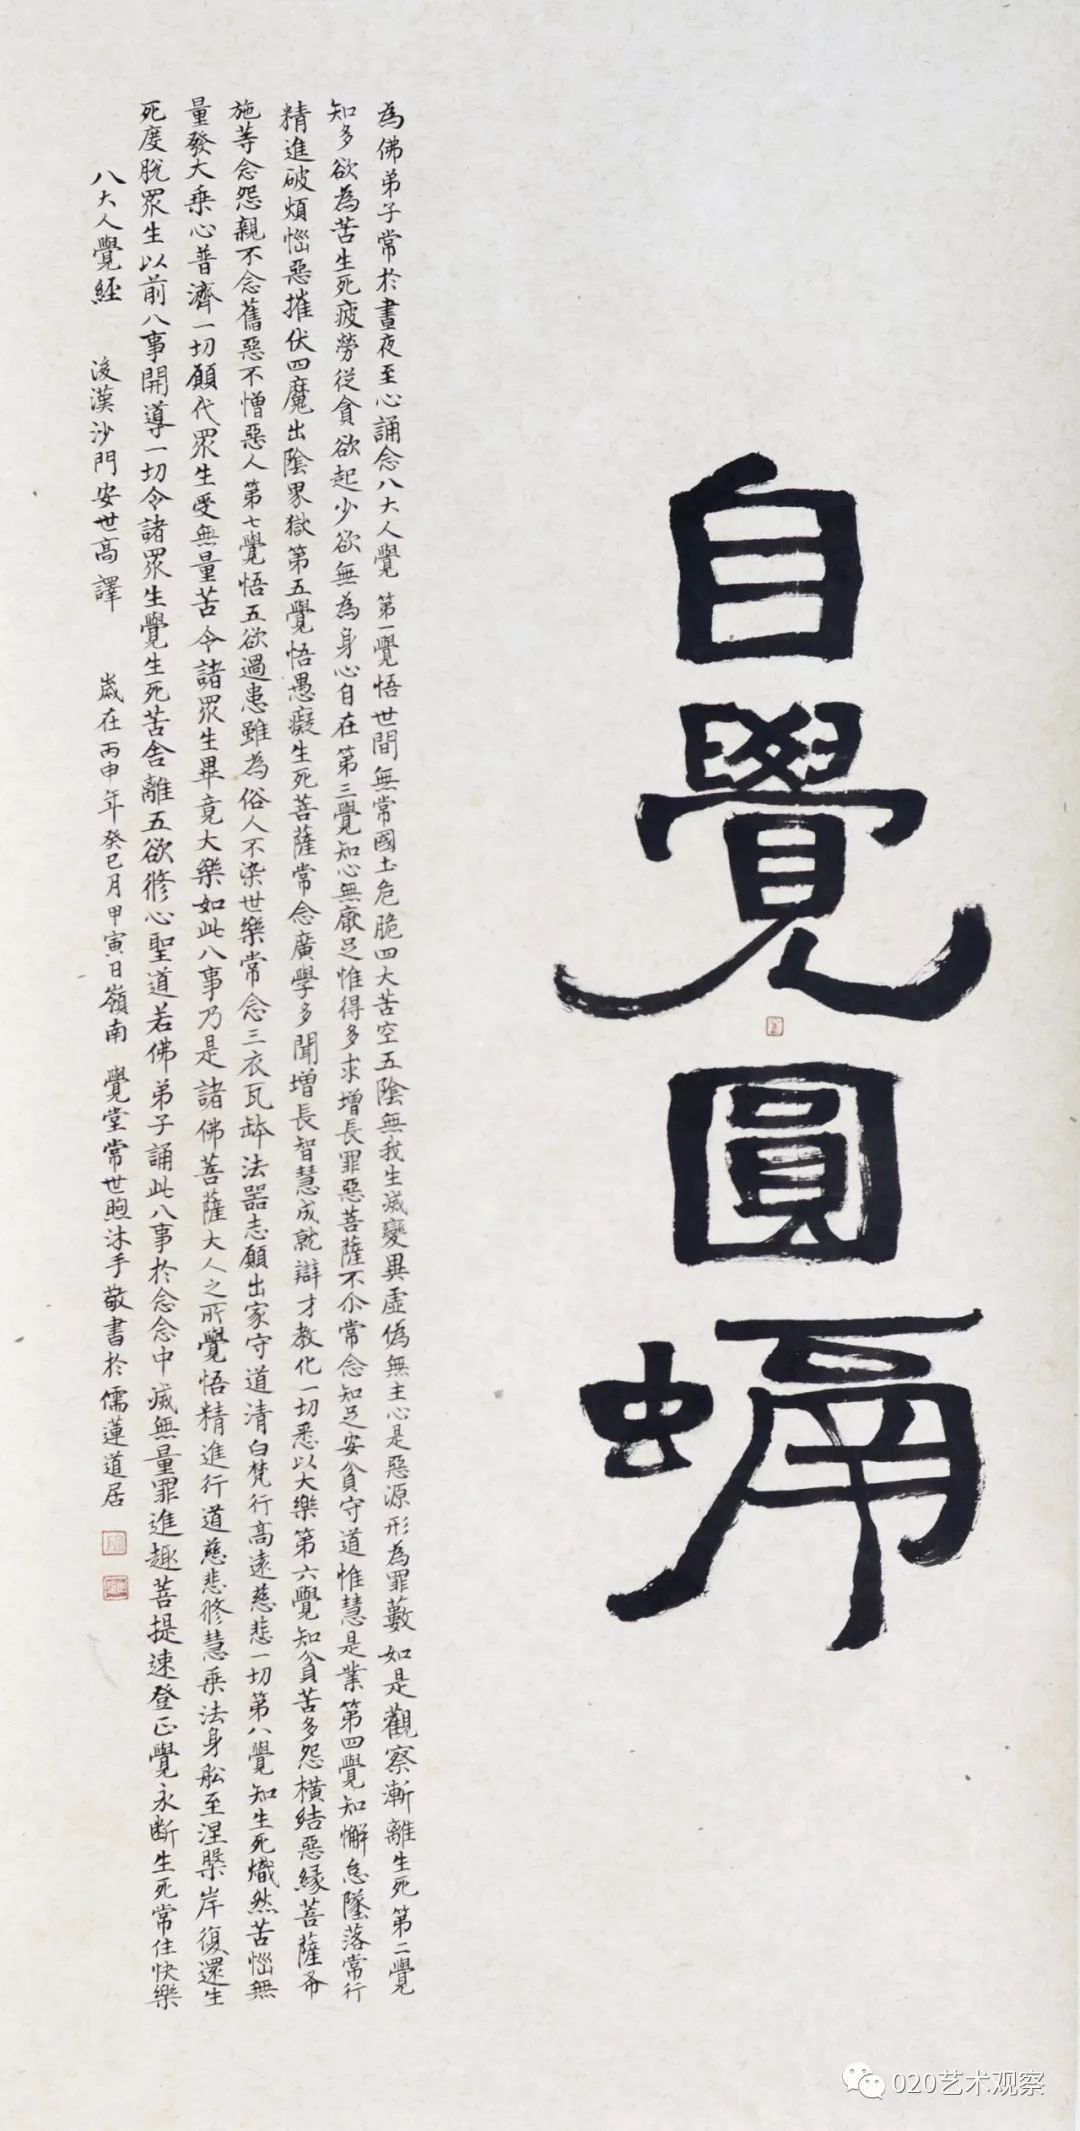 自覺圓螎
為佛弟子常於晝夜至心誦念八大人覺 第一覺悟世間無常國土危脆四大苦空五陰無我生滅變異虛偽無主心是惡源形為罪藪如是觀察漸離生死第二覺
知多欲為苦生死疲勞從貪欲起少欲無為身心自在第三覺知心無厭足惟得多求增長罪惡菩薩不尒常念知足安貧守道惟慧是業第四覺知懈怠墜落常行
精進破煩惱惡摧伏四魔出陰界獄第五覺悟愚癡生死菩薩常念廣學多聞增長智慧成就辯才教化一切悉以大樂第六覺知貧苦多怨橫結惡緣菩薩布
施等念怨親不念舊惡不憎惡人第七覺悟五欲過患雖為俗人不染世樂常念三衣瓦缽法器志願出家守道清白梵行高遠慈悲一切第八覺知生死熾然苦惱無
量發大乘心普濟一切願代眾生受無量苦令諸眾生畢竟大樂如此八事乃是諸佛菩薩大人之所覺悟精進行道慈悲修慧乘法身船至涅槃岸復還生
死度脫眾生以前八事開導一切令諸眾生覺生死苦舍離五欲修心聖道若佛弟子誦此八事於念念中滅無量罪進趣菩提速登正覺永斷生死常住快樂
八大人覺經 後漢沙門安世高譯 歲在丙申年癸巳月甲寅日嶺南 覺堂常世煦沐手敬書於儒蓮道居
020艺术观察